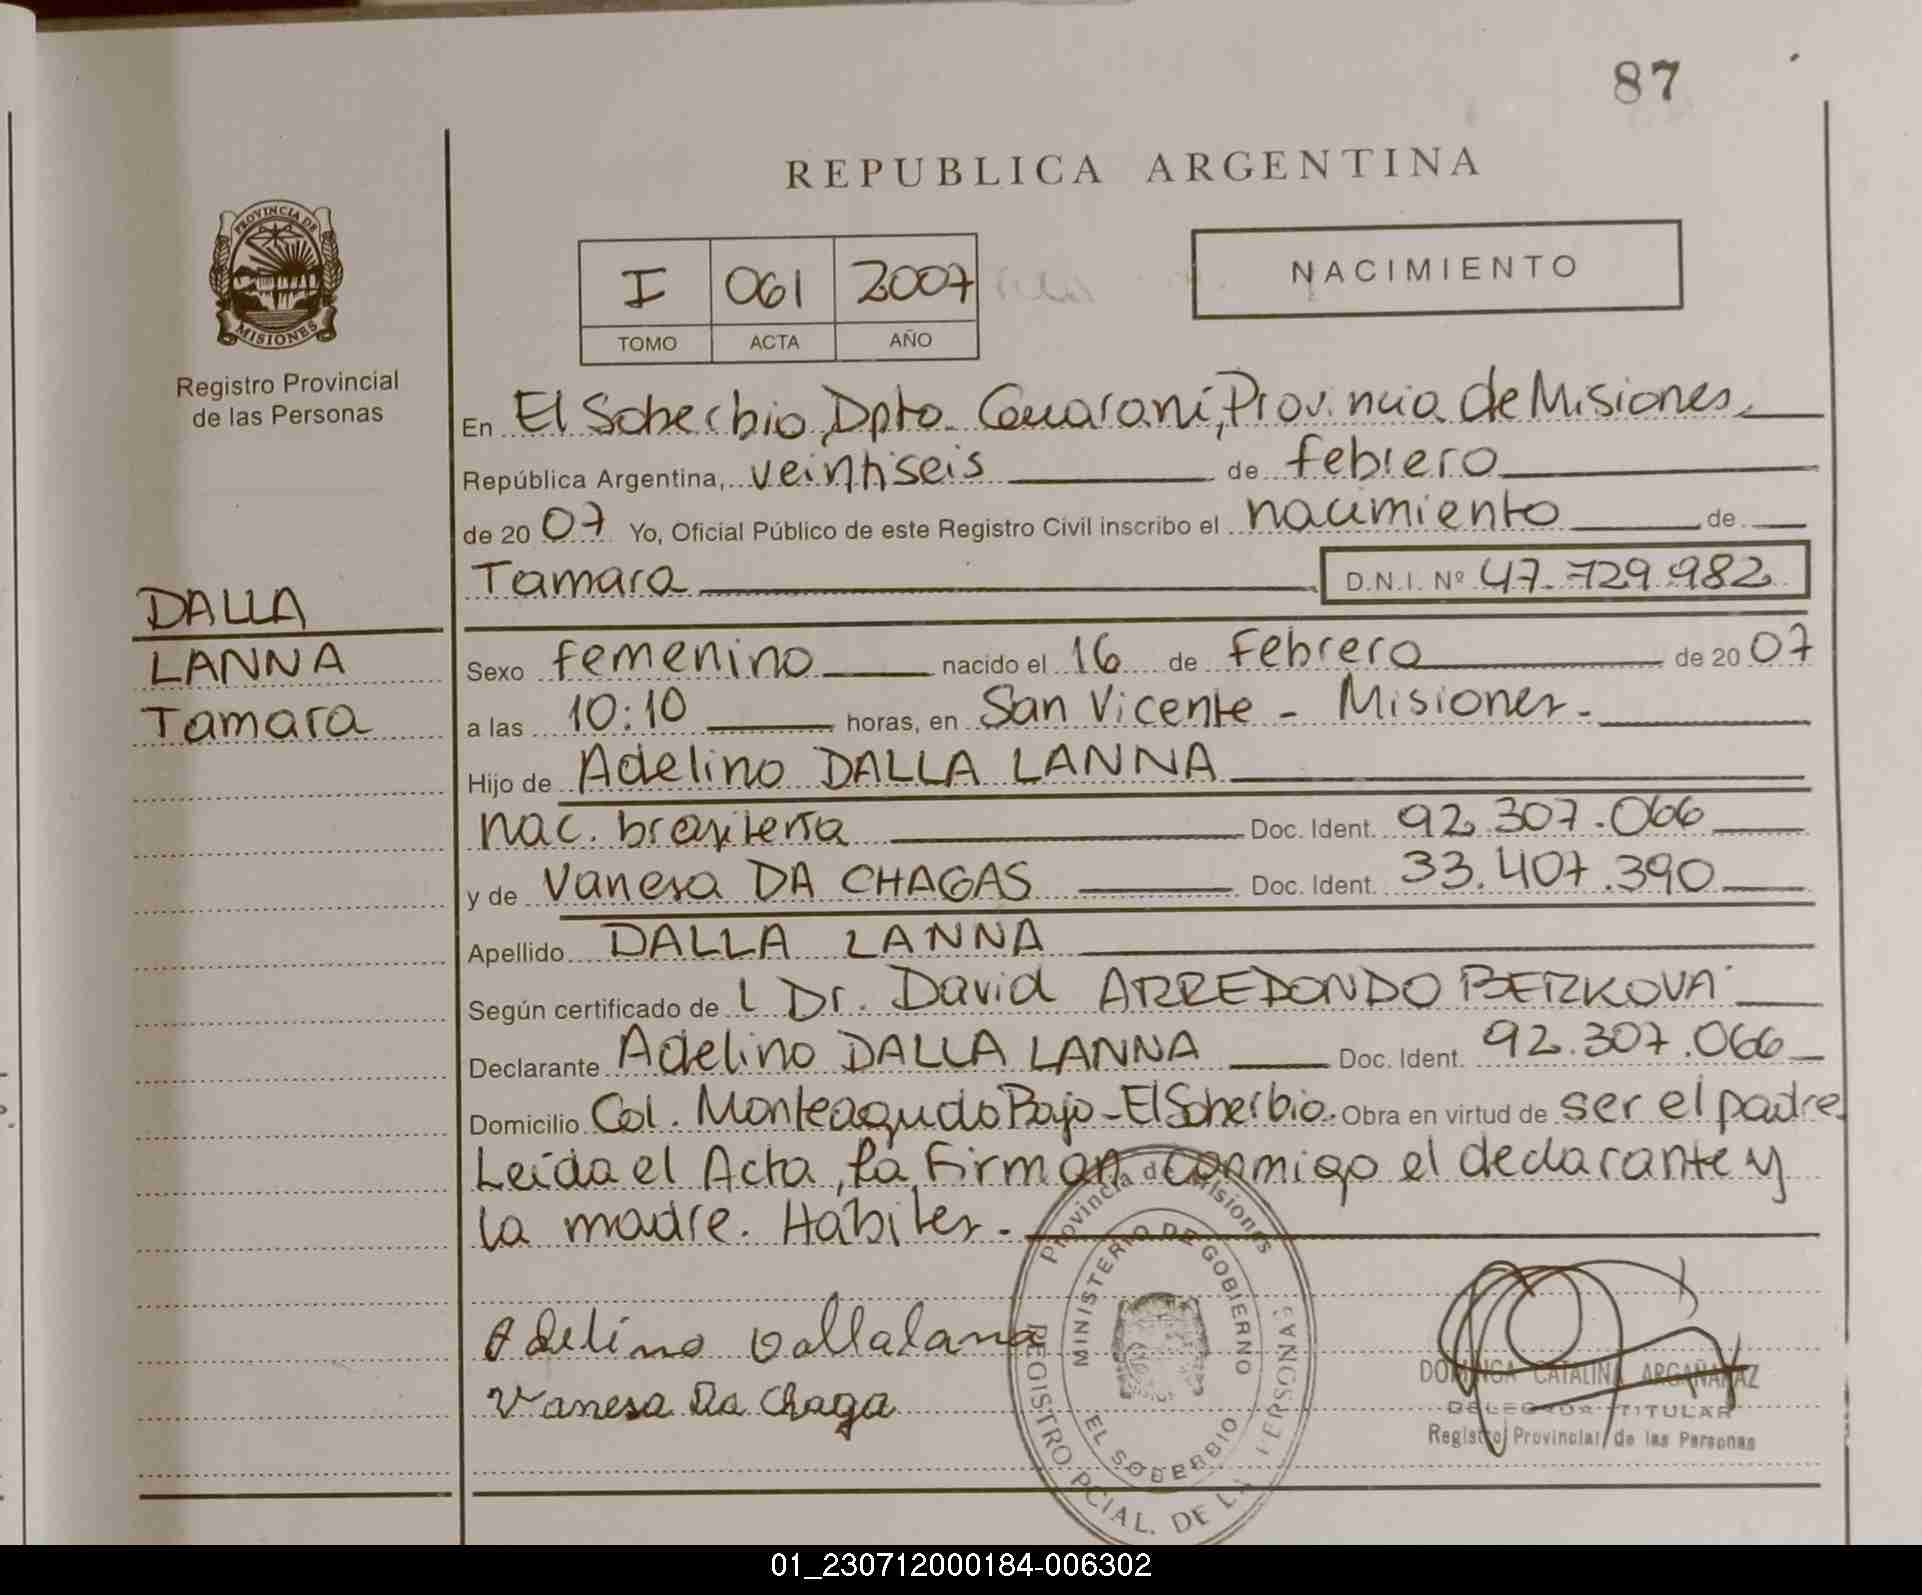 87
REPUBLICA ARGENTINA
PROVINCIA DE
MISIONES
Registro Provincial
de las Personas
I 061 2007
TOMO ACTA AÑO
NACIMIENTO
En El Soberbio, Dpto. Guaraní, Provincia de Misiones,
República Argentina, veintiseis de febrero
de 20 07 Yo, Oficial Público de este Registro Civil inscribo el nacimiento de
Tamara D.N.I. Nº 47.729.982
DALLA
LANNA
Tamara
Sexo femenino nacido el 16 de Febrero de 20 07
a las 10:10 horas, en San Vicente - Misiones.
Hijo de Adelino DALLA LANNA
nac. brasileña Doc. Ident. 92.307.066
y de Vanesa DA CHAGAS Doc. Ident. 33.407.390
Apellido DALLA LANNA
Según certificado de l Dr. David ARREDONDO BERKOVA
Declarante Adelino DALLA LANNA Doc. Ident. 92.307.066
Domicilio Col. Monteagudo Bajo - El Soberbio. Obra en virtud de ser el padre
Leída el Acta, la Firman conmigo el declarante y
la madre. Hábiles.-
Adelino Dallalana
Vanesa Da Chaga
Provincia de Misiones
MINISTERIO DE GOBIERNO
EL SOBERBIO
REGISTRO PCIAL. DE LAS PERSONAS
DOMINGA CATALINA ARGAÑARAZ
DELEGADA TITULAR
Registro Provincial de las Personas
01_230712000184-006302